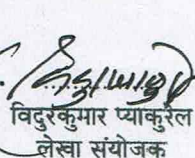 विदुरकुमार प्याकुरेल
लेखा संयोजक